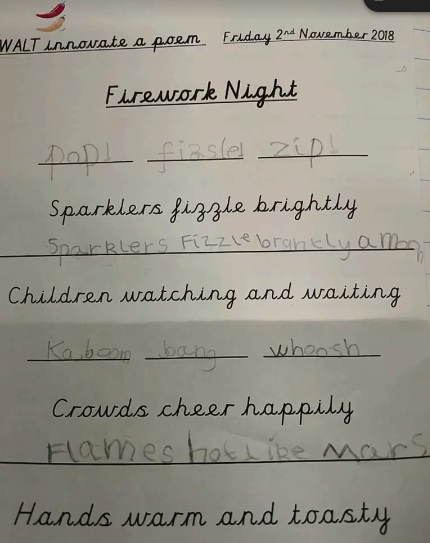 WALT innovate a poem Friday 2nd November 2018
Firework Night
pop! zip!
Sparklers fizzle brightly
Sparklers Fizzle brantly a
Children watching and waiting
Kaboom bang whoosh
Crowds cheer happily
Flames hot like Mars
Hands warm and toasty